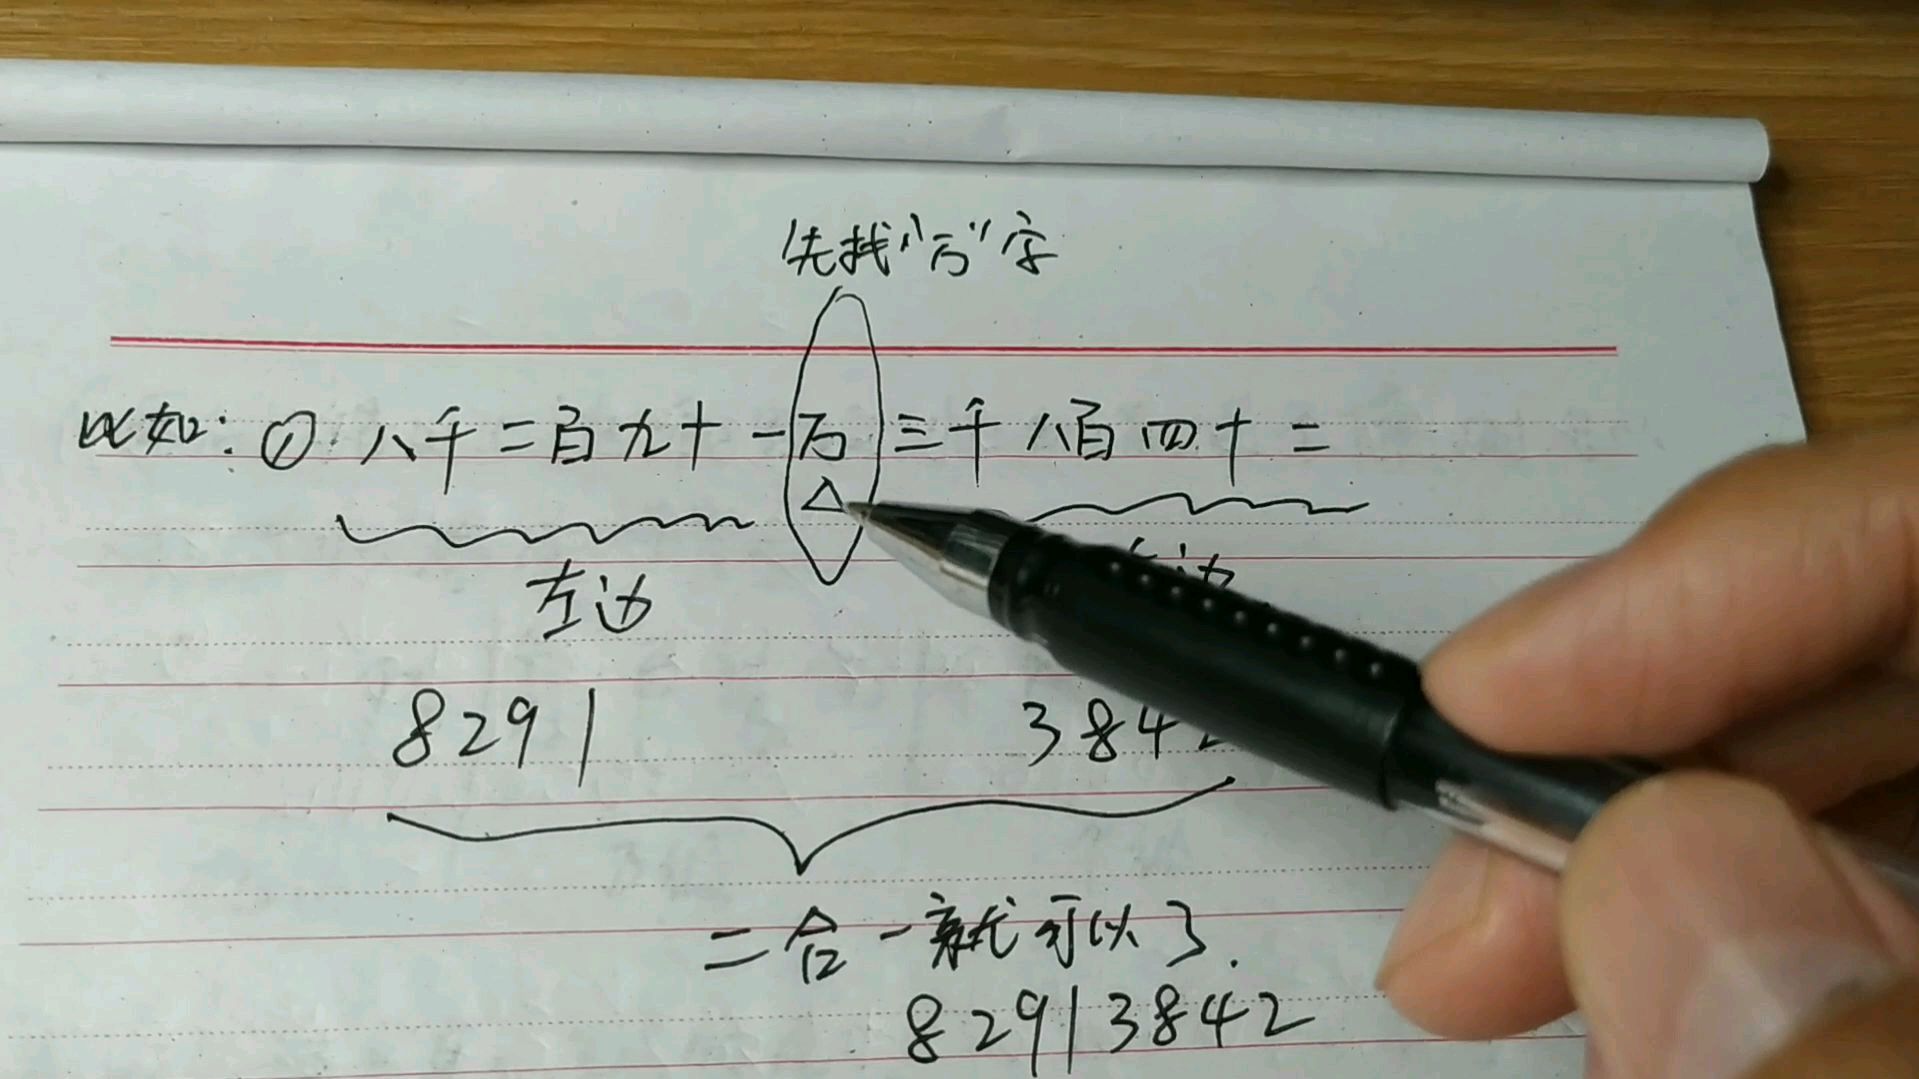 先找“万”字
比如：① 八千二百九十一万三千八百四十二
左边 边
8291 384
二合一就可以了.
82913842